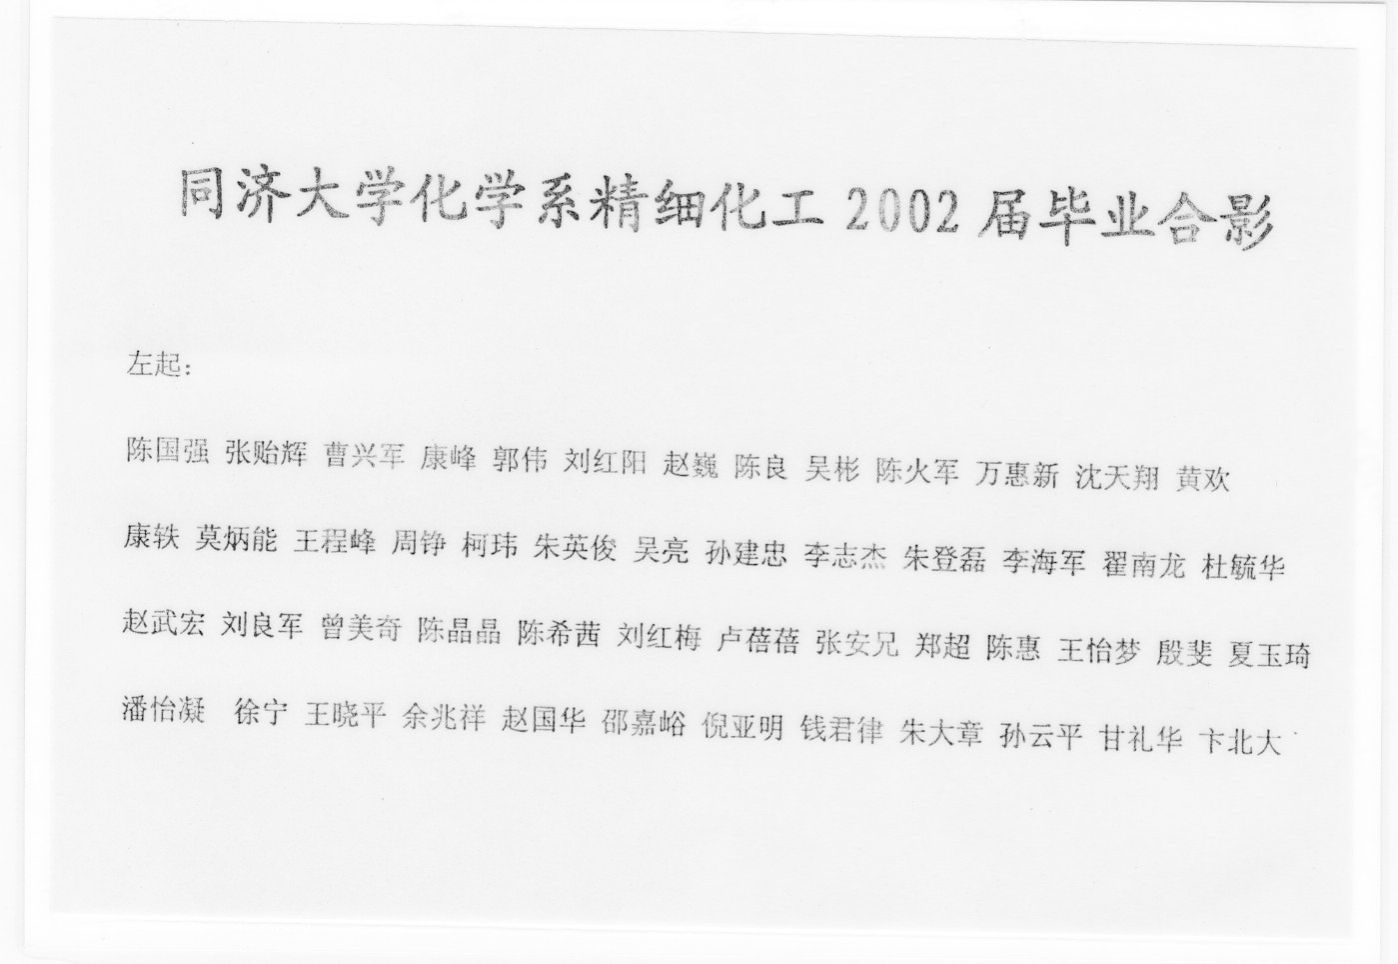 同济大学化学系精细化工 2002 届毕业合影
左起：
陈国强 张贻辉 曹兴军 康峰 郭伟 刘红阳 赵巍 陈良 吴彬 陈火军 万惠新 沈天翔 黄欢
康轶 莫炳能 王程峰 周铮 柯玮 朱英俊 吴亮 孙建忠 李志杰 朱登磊 李海军 翟南龙 杜毓华
赵武宏 刘良军 曾美奇 陈晶晶 陈希茜 刘红梅 卢蓓蓓 张安兄 郑超 陈惠 王怡梦 殷斐 夏玉琦
潘怡凝 徐宁 王晓平 余兆祥 赵国华 邵嘉峪 倪亚明 钱君律 朱大章 孙云平 甘礼华 卞北大